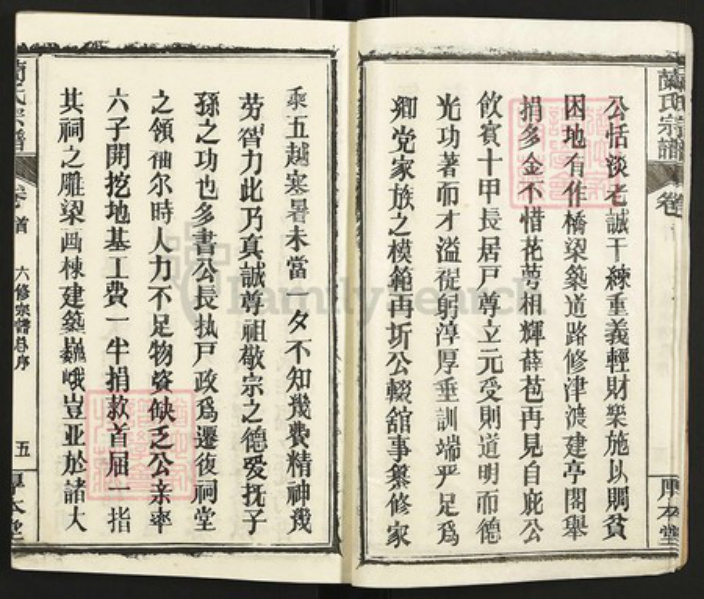 蘭氏宗譜
卷
厚本堂
公恬淡老誠干練重義輕財樂施以賙貧
困地有作橋梁築道路修津渡建亭閣舉
捐多金不惜花萼相輝薛苞再見自庇公
飲賓十甲長居戸尊立元受則道明而德
光功著而才溢禔躬淳厚垂訓端严足爲
鄉党家族之模範再圻公輟舘事纂修家
乘五越寒暑未當一夕不知幾費精神幾
劳智力此乃真誠尊祖敬宗之德爱抚子
孫之功也多書公長执戸政爲遷復祠堂
之領袖尔时人力不足物资缺乏公亲率
六子開挖地基工費一半捐款首屈一指
其祠之雕梁画棟建築巍峨豈亚於諸大
蘭氏宗譜
卷首
六修宗譜总序
五
厚本堂
FamilySearch